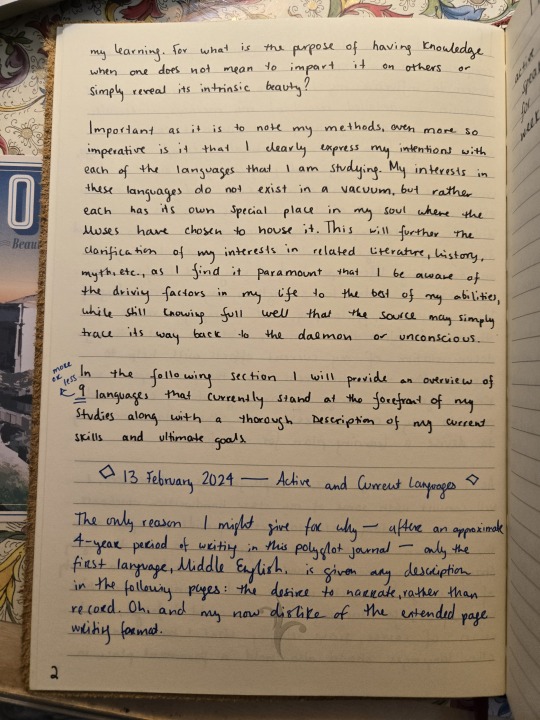 my learning. For what is the purpose of having knowledge
when one does not mean to impart it on others or
simply reveal its intrinsic beauty?
Important as it is to note my methods, even more so
imperative is it that I clearly express my intentions with
each of the languages that I am studying. My interests in
these languages do not exist in a vacuum, but rather
each has its own special place in my soul where the
Muses have chosen to house it. This will further the
clarification of my interests in related literature, history,
myth, etc., as I find it paramount that I be aware of
the driving factors in my life to the best of my abilities,
while still knowing full well that the source may simply
trace its way back to the daemon or unconscious.
more
or less
In the following section I will provide an overview of
9 languages that currently stand at the forefront of my
studies along with a thorough description of my current
skills and ultimate goals.
13 February 2024 — Active and Current Languages
The only reason I might give for why — after an approximate
4-year period of writing in this polyglot journal — only the
first language, Middle English, is given any description
in the following pages: the desire to narrate, rather than
record. Oh, and my now dislike of the extended page
writing format.
2
O
Beau
speak
for
week